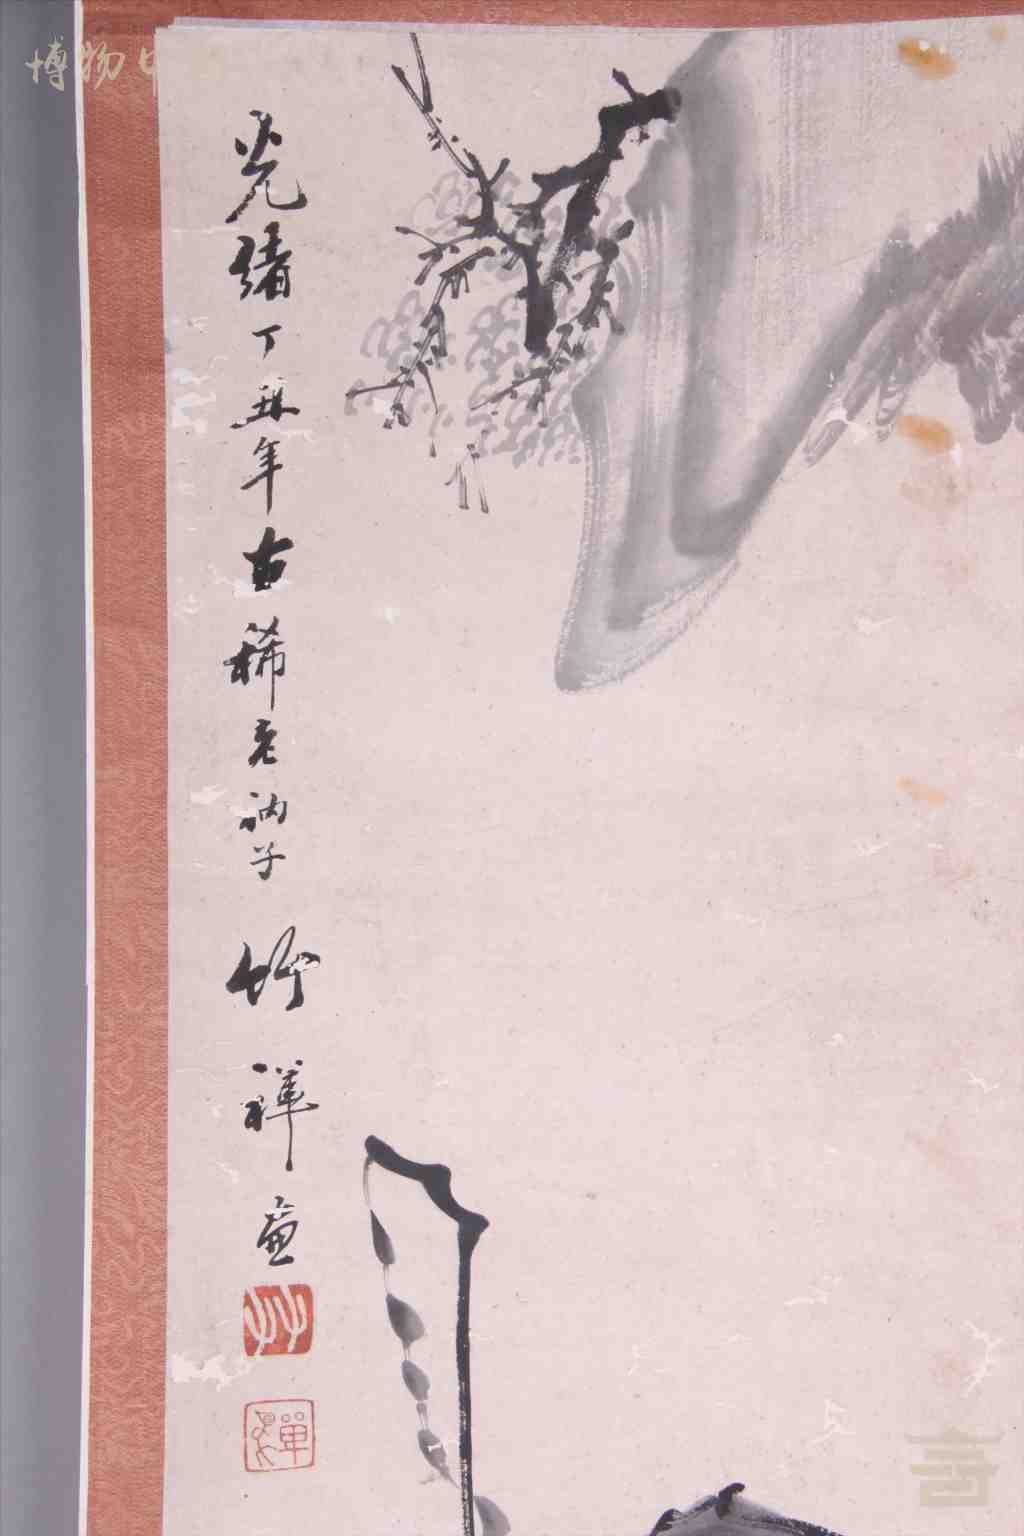 博物中
光緒丁丑年古稀老衲子竹禪画
竹
禪